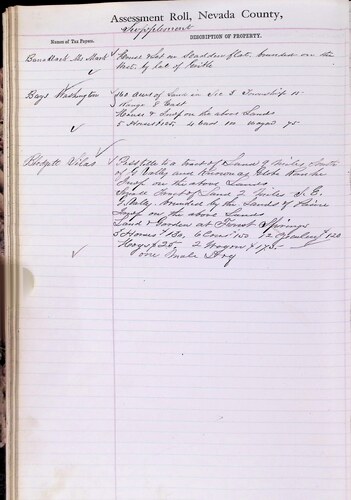 Assessment Roll, Nevada County,
Supplement
Names of Tax Payers.
DESCRIPTION OF PROPERTY.
House & Lot on Scadden flat. bounded on the
West. by Lot of
Bays Washington
160 acres of Land in Sec 5 Township 15
Range 7 East
Houses & Imp on the above Lands
5 Horses 125. 4 Cows 100 Wagon 75
Blodgett Silas
Poss title to a tract of Land 2 Miles South
of G Valley and Known as Globe Ranche
Imp on the above Lands
Small tract of Land 2 Miles S. E.
G. Valley. bounded by the Lands of
Imp on the above Lands
Land & Garden at Forest Springs
3 Horses $130, 6 Cows 150 12 $120
Hogs $25. 2 Wagon $175.
one